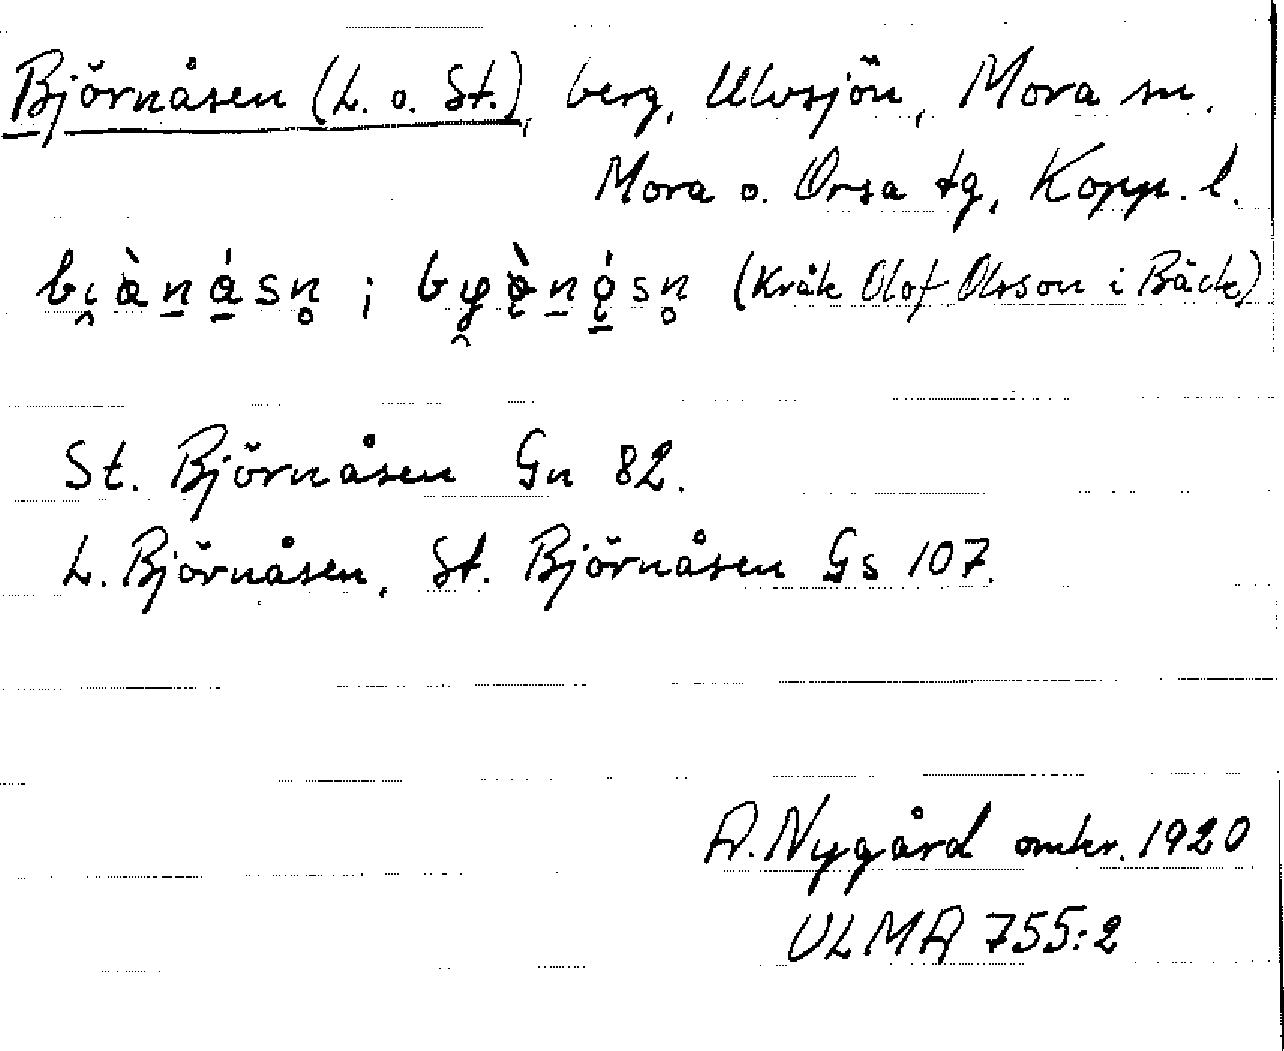 Björnåsen (L. o. St.), berg, Ulvsjön, Mora sn.
Mora o. Orsa tg, Kopp. l.
(Kråk Olof Olsson i Bäck)
St. Björnåsen Gn 82.
L. Björnåsen, St. Björnåsen Gs 107.
A. Nygård omkr. 1920
ULMA 755:2